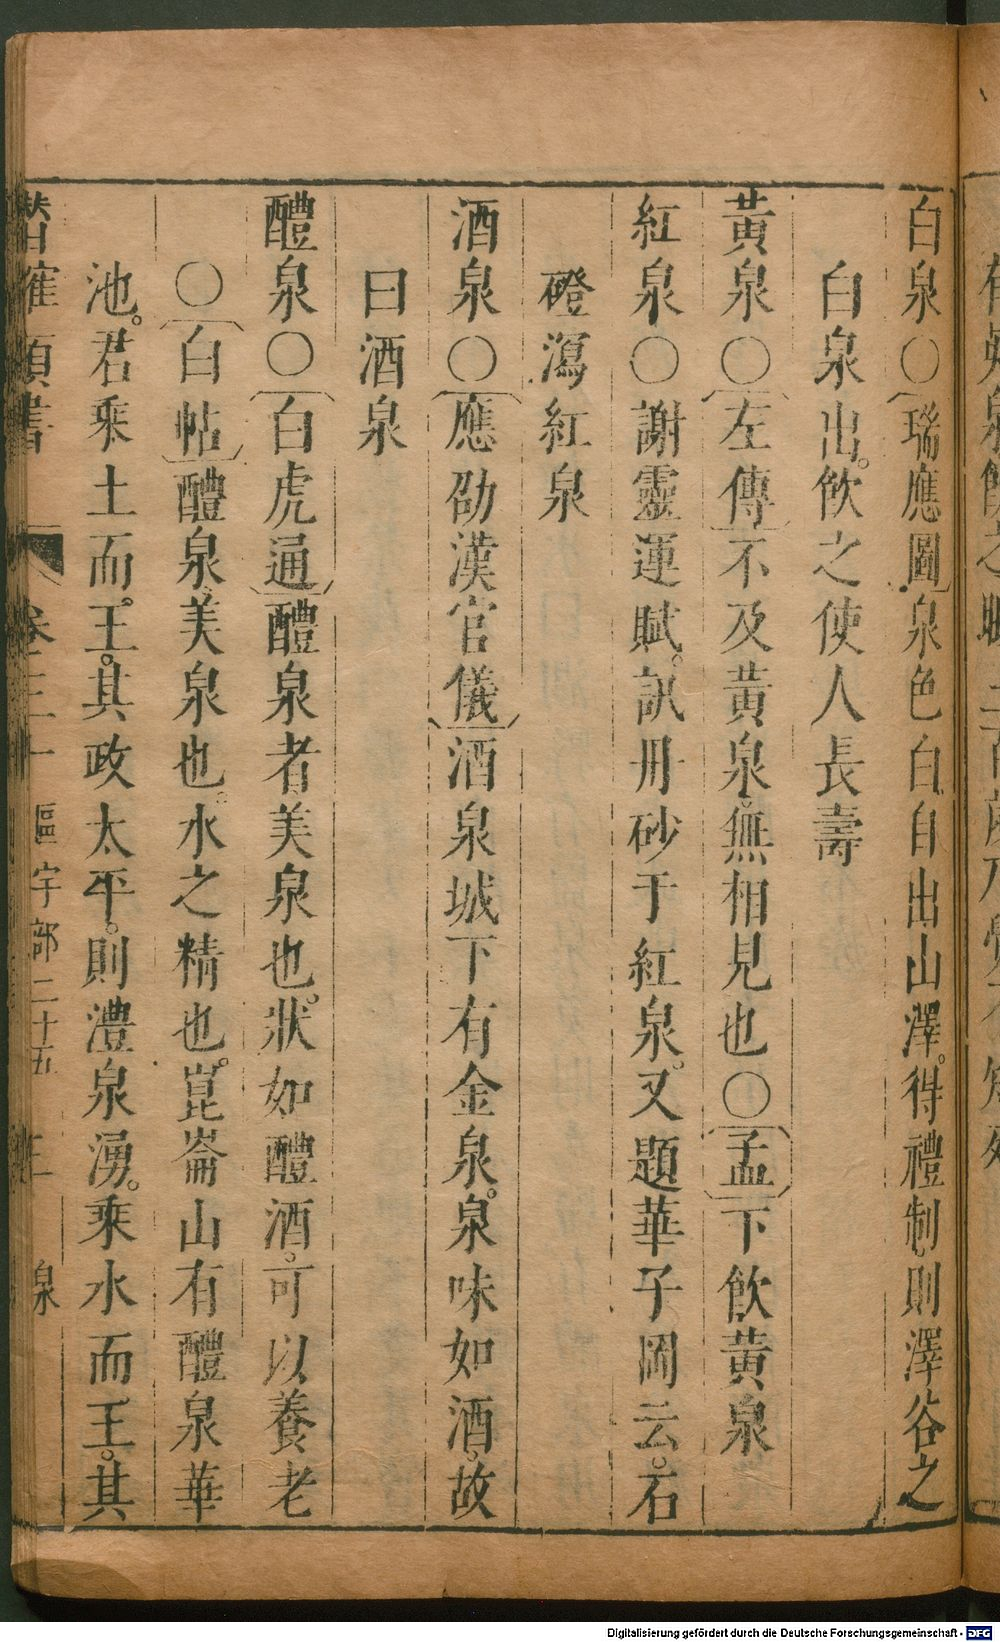 白泉〇瑞應圖泉色白自出山澤。得禮制。則澤谷之
白泉出。飲之使人長壽
黃泉〇左傳不及黃泉。無相見也〇孟下飲黃泉
紅泉〇謝靈運賦。訊丹砂于紅泉。又題華子岡云。石
磴瀉紅泉
酒泉〇應劭漢官儀酒泉城下有金泉。泉味如酒。故
曰酒泉
醴泉〇白虎通醴泉者美泉也。狀如醴酒。可以養老
〇白帖醴泉。美泉也。水之精也。崑崙山有醴泉華
池。君乘土而王。其政太平。則澧泉湧。乘水而王。其
潛確類書 卷三十一 區宇部二十五 泉
Digitalisierung gefördert durch die Deutsche Forschungsgemeinschaft - DFG